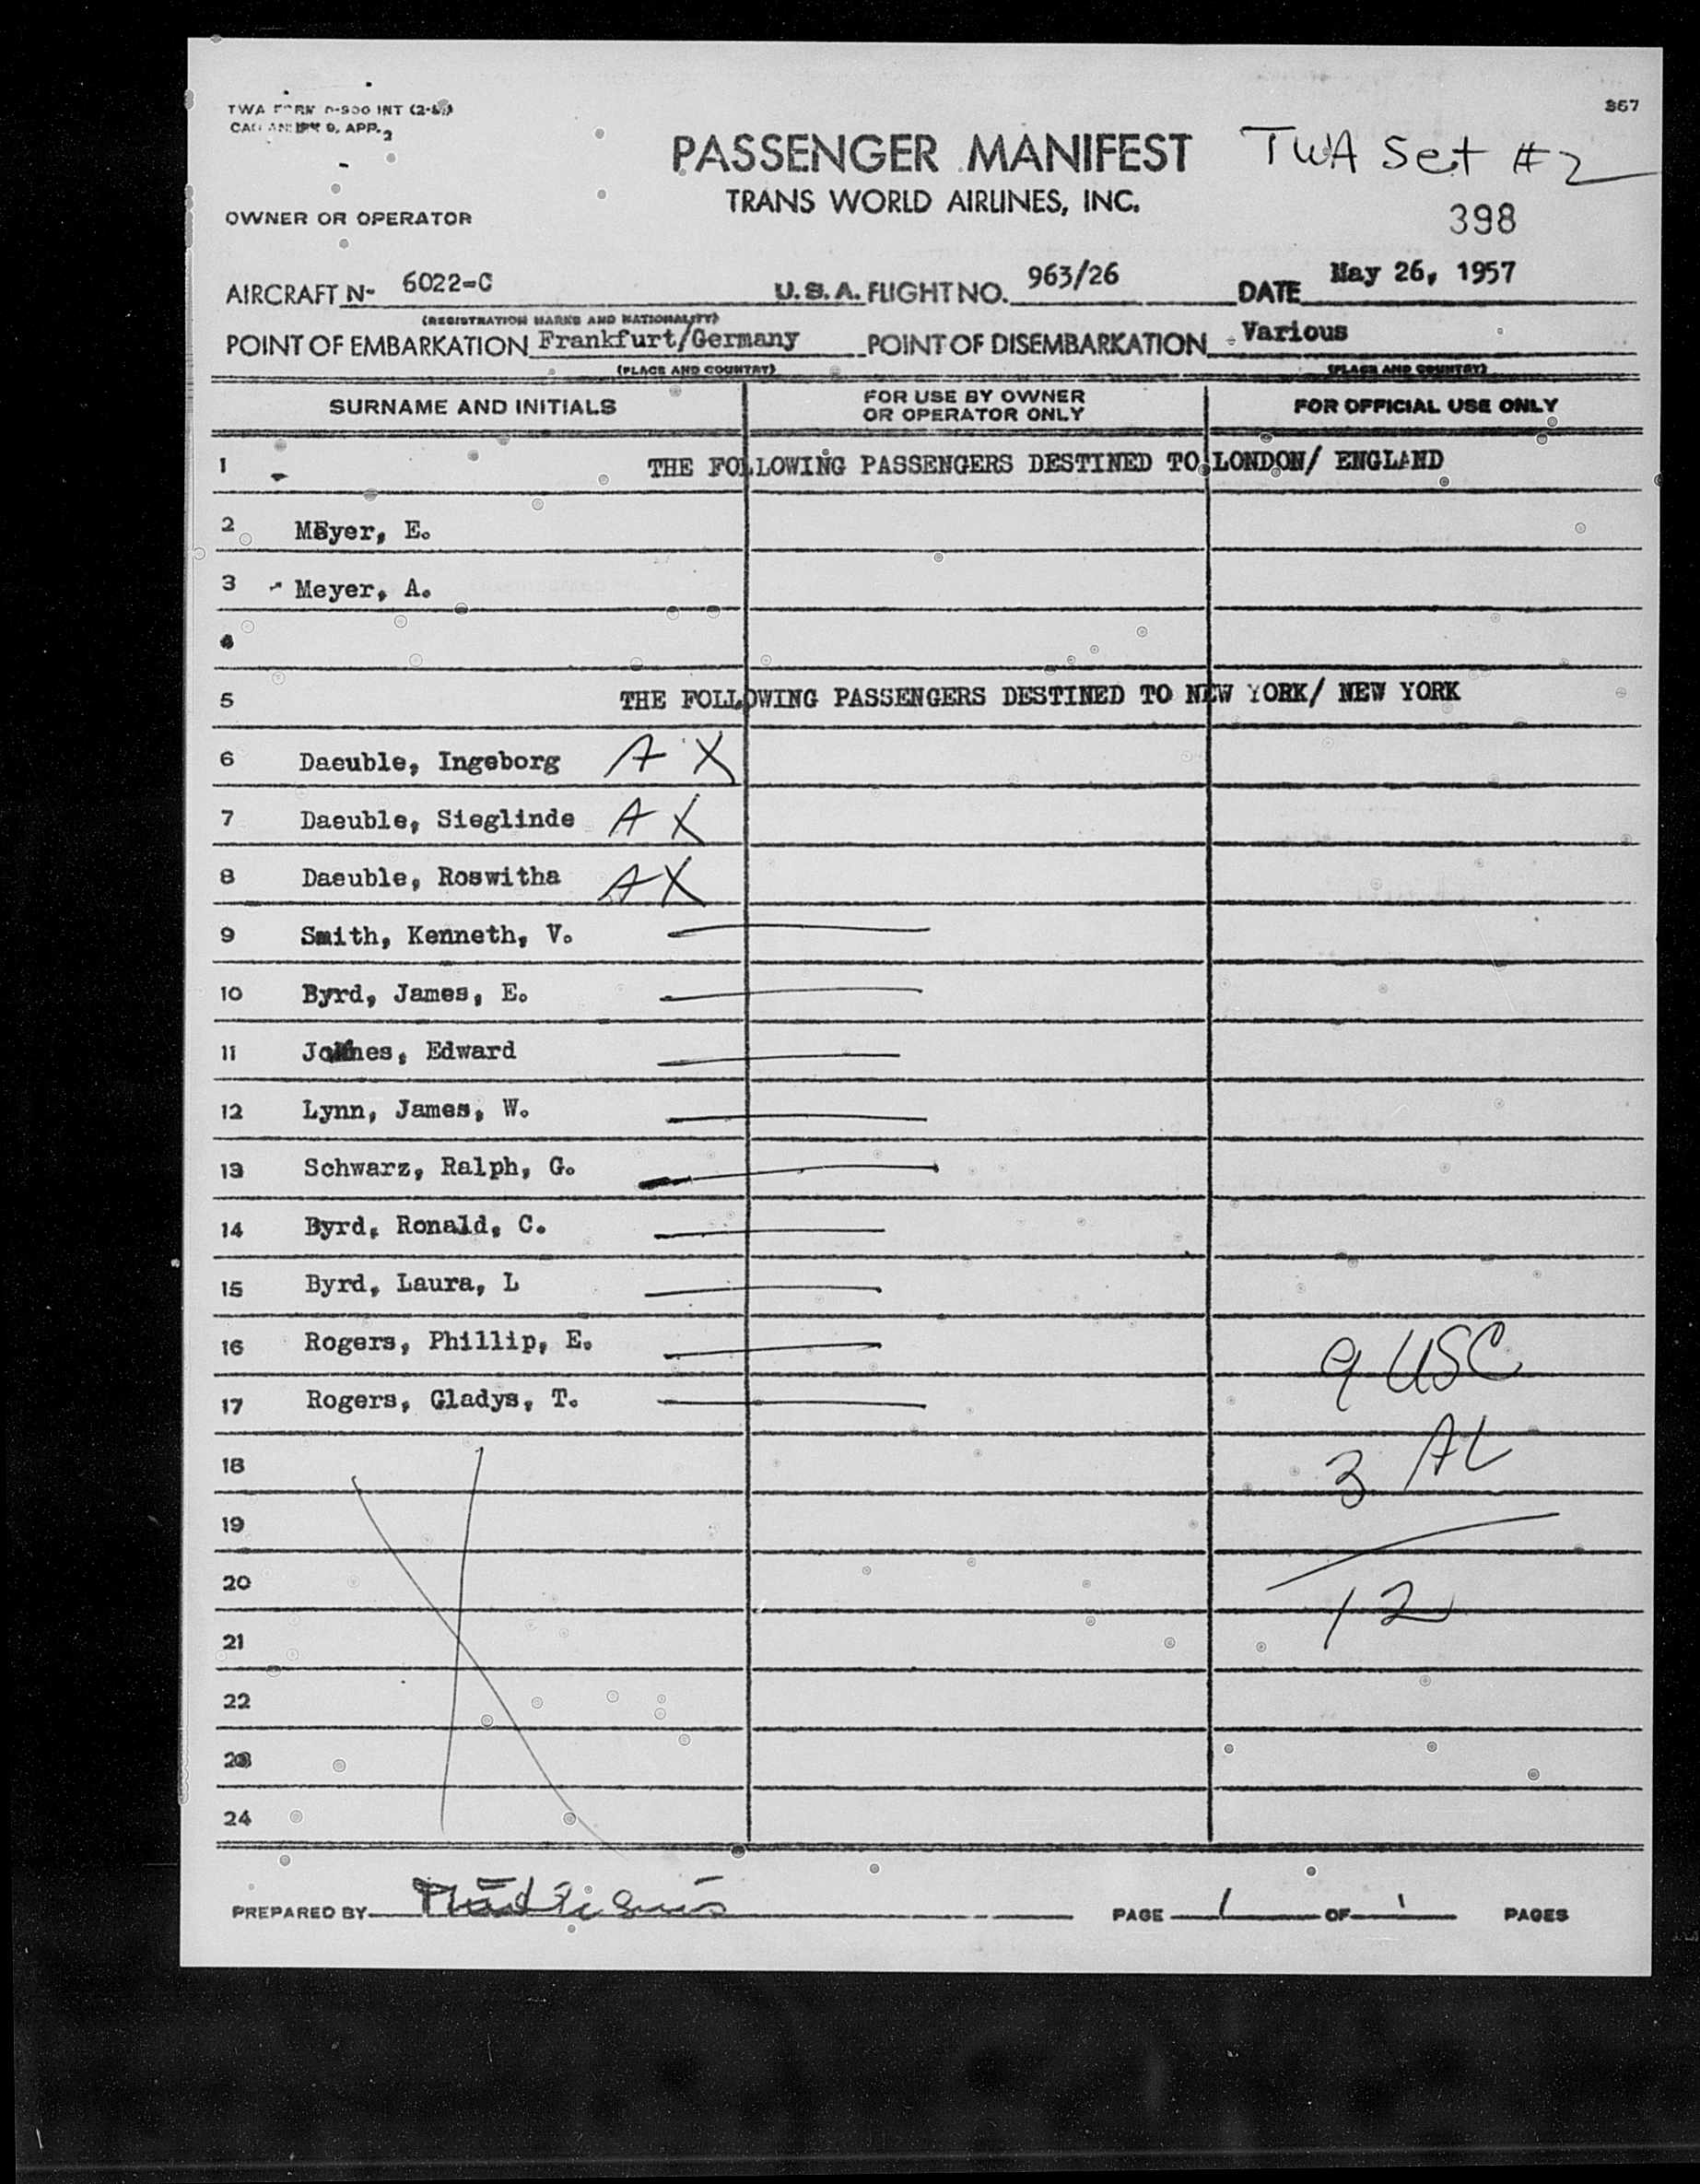 367
TWA FORM
CAO ANNEX 9, APP. 2
PASSENGER MANIFEST TWA Set #2
TRANS WORLD AIRLINES, INC.
OWNER OR OPERATOR
398
AIRCRAFT N- 6022-C U.S.A. FLIGHT NO. 963/26 DATE May 26, 1957
(REGISTRATION MARKS AND NATIONALITY)
POINT OF EMBARKATION Frankfurt/Germany POINT OF DISEMBARKATION Various
(PLACE AND COUNTRY) (PLACE AND COUNTRY)
SURNAME AND INITIALS FOR USE BY OWNER OR OPERATOR ONLY FOR OFFICIAL USE ONLY
1 THE FOLLOWING PASSENGERS DESTINED TO LONDON/ ENGLAND
2 Meyer, E.
3 Meyer, A.
4
5 THE FOLLOWING PASSENGERS DESTINED TO NEW YORK/ NEW YORK
6 Daeuble, Ingeborg A X
7 Daeuble, Sieglinde A X
8 Daeuble, Roswitha A X
9 Smith, Kenneth, V.
10 Byrd, James, E.
11 Edward
12 Lynn, James, W.
13 Schwarz, Ralph, G.
14 Byrd, Ronald, C.
15 Byrd, Laura, L
16 Rogers, Phillip, E. 9 USC
17 Rogers, Gladys, T.
18 3 AL
19
20 12
21
22
23
24
PREPARED BY PAGE 1 OF 1 PAGES